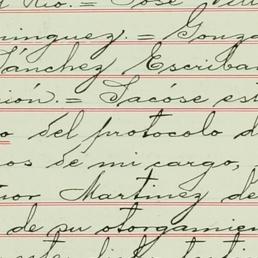 Rio. = José Vill
minguez. = Gonza
Sánchez Escriban
ión. = Sacóse est
o del protocolo d
os de mi cargo,
Martinez de
de su otorgamien